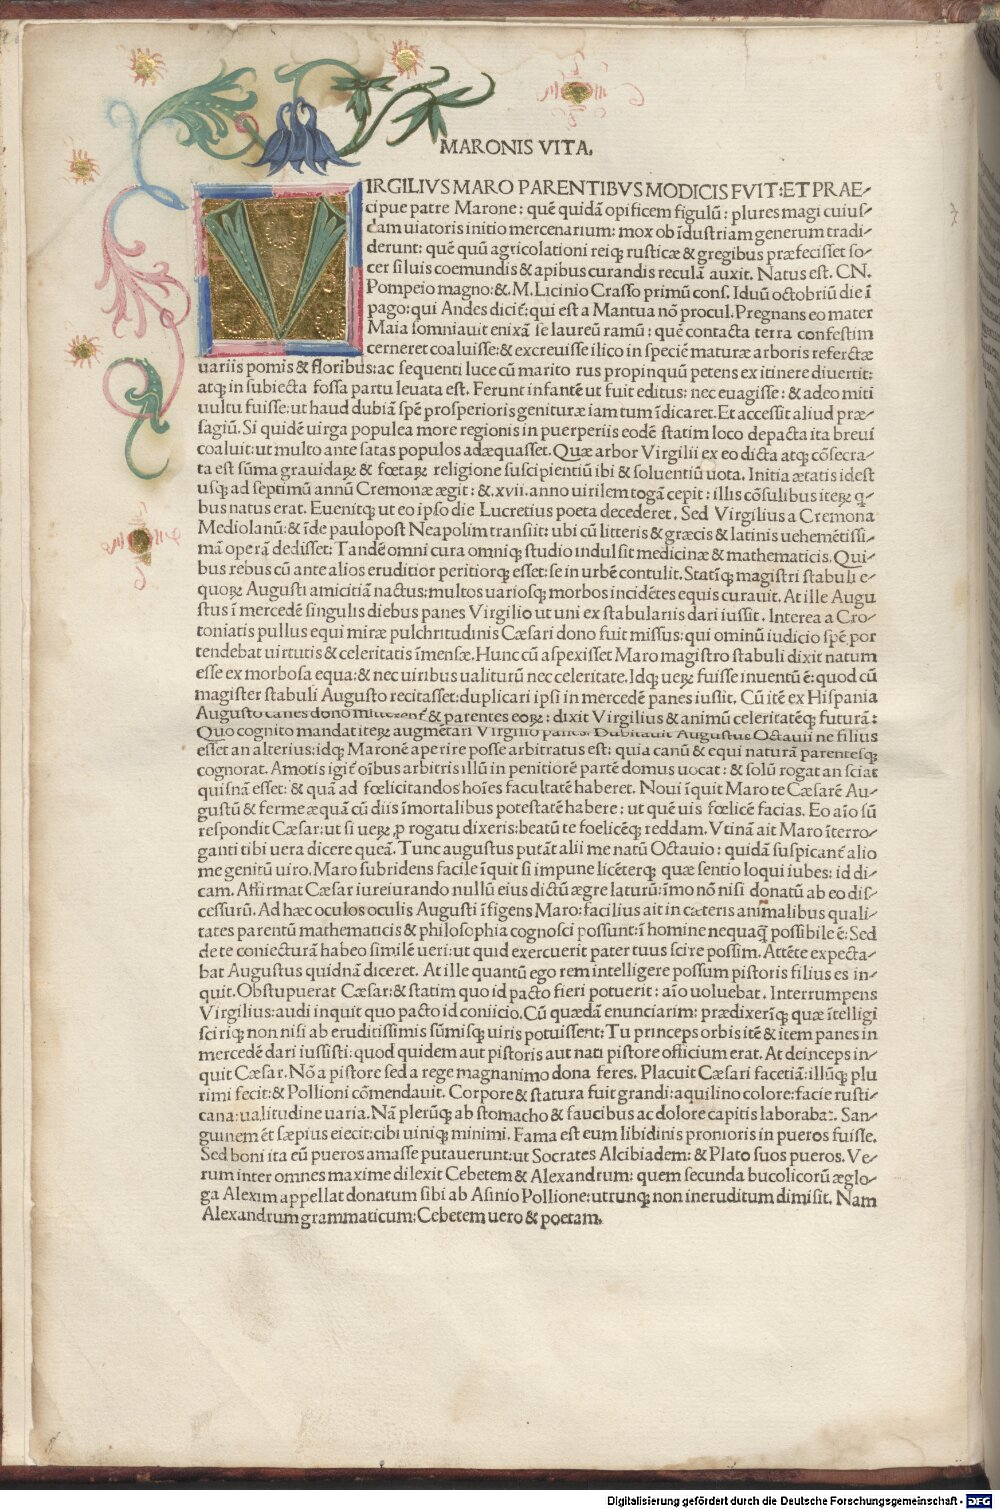 MARONIS VITA.
VIRGILIVS MARO PARENTIBVS MODICIS FVIT: ET PRAE-
cipue patre Marone: quē quidā opificem figulū: plures magi cuius-
dam uiatoris initio mercenarium: mox ob īdustriam generum tradi-
derunt: quē quū agricolationi reiq; rusticæ & gregibus præfecisset so-
cer siluis coemundis & apibus curandis reculā auxit. Natus est. CN.
Pompeio magno: &. M. Licinio Crasso primū cons. Iduū octobriū die ī
pago: qui Andes dicit᷑: qui est a Mantua nō procul. Pregnans eo mater
Maia somniauit enixā se laureū ramū: quē contacta terra confestim
cerneret coaluisse: & excreuisse ilico in speciē maturæ arboris refertæ
uariis pomis & floribus: ac sequenti luce cū marito rus propinquū petens ex itinere diuertit:
atq; in subiecta fossa partu leuata est. Ferunt infantē ut fuit editus: nec euagisse: & adeo miti
uultu fuisse: ut haud dubiā spē prosperioris genituræ iam tum īdicaret. Et accessit aliud præ-
sagiū. Si quidē uirga populea more regionis in puerperiis eodē statim loco depacta ita breui
coaluit: ut multo ante satas populos adæquasset. Quæ arbor Virgilii ex eo dicta atq; cōsecra-
ta est sūma grauidaꝝ & fœtaꝝ religione suscipientiū ibi & soluentiū uota. Initia ætatis id est
usq; ad septimū annū Cremonæ ægit: &. xvii. anno uirilem togā cepit: illis cōsulibus iteꝝ q-
bus natus erat. Euenitq; ut eo ipso die Lucretius poeta decederet. Sed Virgilius a Cremona
Mediolanū: & īde paulopost Neapolim transiit: ubi cū litteris & græcis & latinis uehemētissi-
mā operā dedisset: Tandē omni cura omniq; studio indulsit medicinæ & mathematicis. Qui-
bus rebus cū ante alios eruditior peritiorq; esset: se in urbē contulit. Statīq; magistri stabuli e-
quoꝝ Augusti amicitiā nactus: multos uariosq; morbos incidētes equis curauit. At ille Augu
stus ī mercedē singulis diebus panes Virgilio ut uni ex stabulariis dari iussit. Interea a Cro-
toniatis pullus equi miræ pulchritudinis Cæsari dono fuit missus: qui ominū iudicio spē por
tendebat uirtutis & celeritatis īmensæ. Hunc cū aspexisset Maro magistro stabuli dixit natum
esse ex morbosa equa: & nec uiribus ualiturū nec celeritate. Idq; ueꝝ fuisse inuentū ē: quod cū
magister stabuli Augusto recitasset: duplicari ipsi in mercedē panes iussit. Cū itē ex Hispania
Augusto canes dono mitterent᷑ & parentes eoꝝ: dixit Virgilius & animū celeritatēq; futurā:
Quo cognito mandat iteꝝ augmētari Virgilio panes. Dubitauit Augustus Octauii ne filius
esset an alterius: idq; Maronē aperire posse arbitratus est: quia canū & equi naturā parentesq;
cognorat. Amotis igit᷑ oībus arbitris illū in penitiorē partē domus uocat: & solū rogat an sciat
quisnā esset: & quā ad fœlicitandos hoīes facultatē haberet. Noui īquit Maro te Cæsarē Au-
gustū & ferme æquā cū diis īmortalibus potestatē habere: ut quē uis fœlicē facias. Eo aīo sū
respondit Cæsar: ut si ueꝝ ꝓ rogatu dixeris: beatū te foelicēq; reddam. Vtinā ait Maro īterro-
ganti tibi uera dicere queā. Tunc augustus putāt alii me natū Octauio: quidā suspicant᷑ alio
me genitū uiro. Maro subridens facile īquit si impune licēterq; quæ sentio loqui iubes: id di-
cam. Affirmat Cæsar iureiurando nullū eius dictū ægre laturū: īmo nō nisi donatū ab eo dis-
cessurū. Ad hæc oculos oculis Augusti īfigens Maro: facilius ait in cæteris animalibus quali-
tates parentū mathematicis & philosophia cognosci possunt: ī homine nequaq̄ possibile ē: Sed
de te coniecturā habeo similē ueri: ut quid exercuerit pater tuus scire possim. Attēte expecta-
bat Augustus quidnā diceret. At ille quantū ego rem intelligere possum pistoris filius es in-
quit. Obstupuerat Cæsar: & statim quo id pacto fieri potuerit: aīo uoluebat. Interrumpens
Virgilius: audi inquit quo pacto id coniicio. Cū quædā enunciarim: prædixerīq; quæ ītelligi
sciriq; non nisi ab eruditissimis sūmisq; uiris potuissent: Tu princeps orbis itē & item panes in
mercedē dari iussisti: quod quidem aut pistoris aut nati pistore officium erat. At deinceps in-
quit Cæsar. Nō a pistore sed a rege magnanimo dona feres. Placuit Cæsari facetiā: illūq; plu
rimi fecit: & Pollioni cōmendauit. Corpore & statura fuit grandi: aquilino colore: facie rusti-
cana: ualitudine uaria. Nā plerūq; ab stomacho & faucibus ac dolore capitis laborabat. San-
guinem ēt sæpius eiecit: cibi uiniq; minimi. Fama est eum libidinis pronioris in pueros fuisse.
Sed boni ita eū pueros amasse putauerunt: ut Socrates Alcibiadem: & Plato suos pueros. Ve-
rum inter omnes maxime dilexit Cebetem & Alexandrum: quem secunda bucolicorū æglo-
ga Alexim appellat donatum sibi ab Asinio Pollione: utrunq; non ineruditum dimisit. Nam
Alexandrum grammaticum: Cebetem uero & poetam.
Digitalisierung gefördert durch die Deutsche Forschungsgemeinschaft - DFG